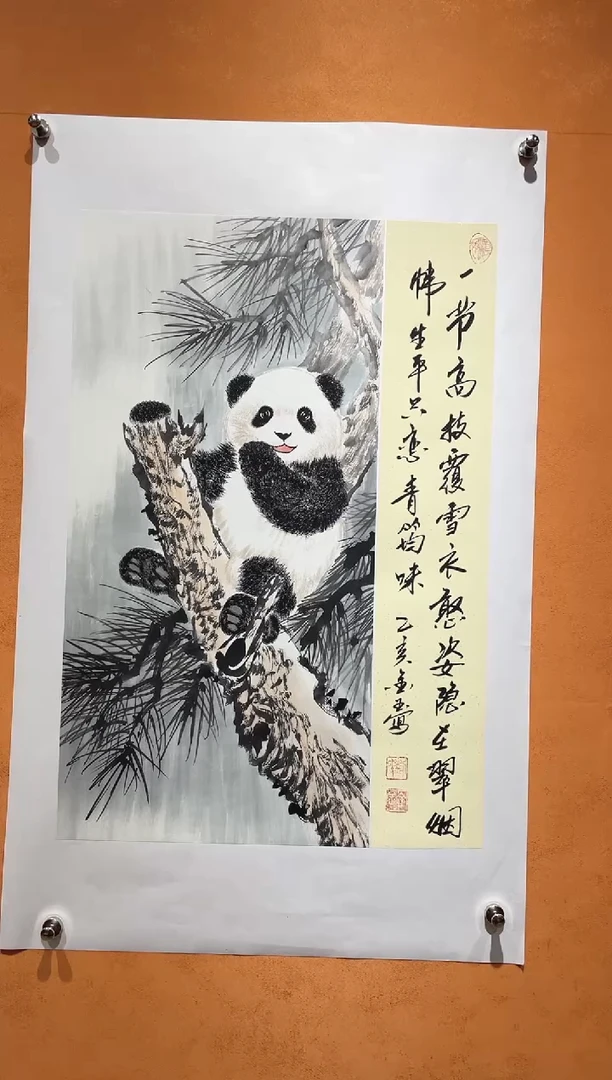 一节高枝覆雪衣憨姿隐在翠烟
帏生平只恋青筠味 乙亥金